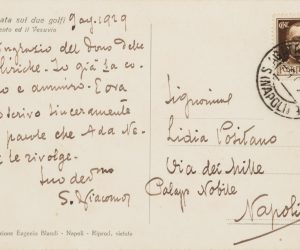 ata sui due golfi
ento ed il Vesuvio
9 ag. 1929
ingrazio del dono delle
liriche. Io già la co
e ammiro. E ora
scrivo sinceramente
parole che Ada Ne
le rivolge.
Suo dev.mo
S. di Giacomo
Signorina
Lidia Positano
Via dei Mille
Palazzo Nobile
Napoli
zione Eugenio - Napoli - Riprod. vietata
NAPOLI